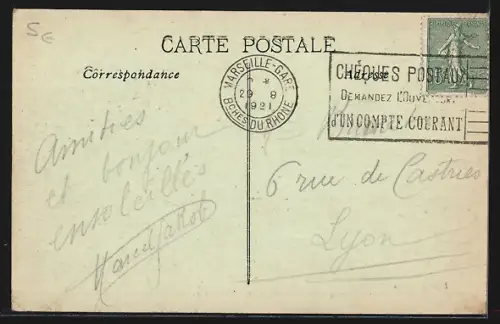 5 €
CARTE POSTALE
Correspondance
Adresse
MARSEILLE-GARE
29 8
1921
BCHES DU RHONE
CHÈQUES POSTAUX
DEMANDEZ L'OUVERTURE
D'UN COMPTE COURANT
Amitiés
et bonjour
ensoleillés
Marcel
6 rue de Castries
Lyon